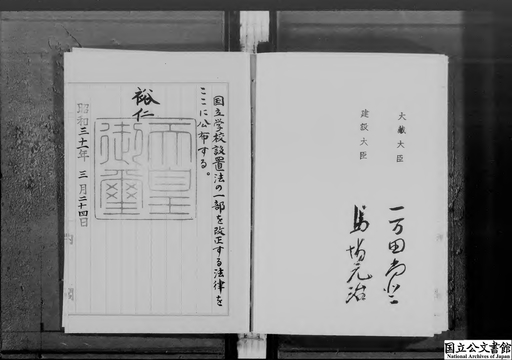 大蔵大臣
一万田尚登
建設大臣
馬場元治
国立学校設置法の一部を改正する法律を
ここに公布する。
裕仁
天皇
御璽
昭和三十一年 三月二十四日
国立公文書館
National Archives of Japan